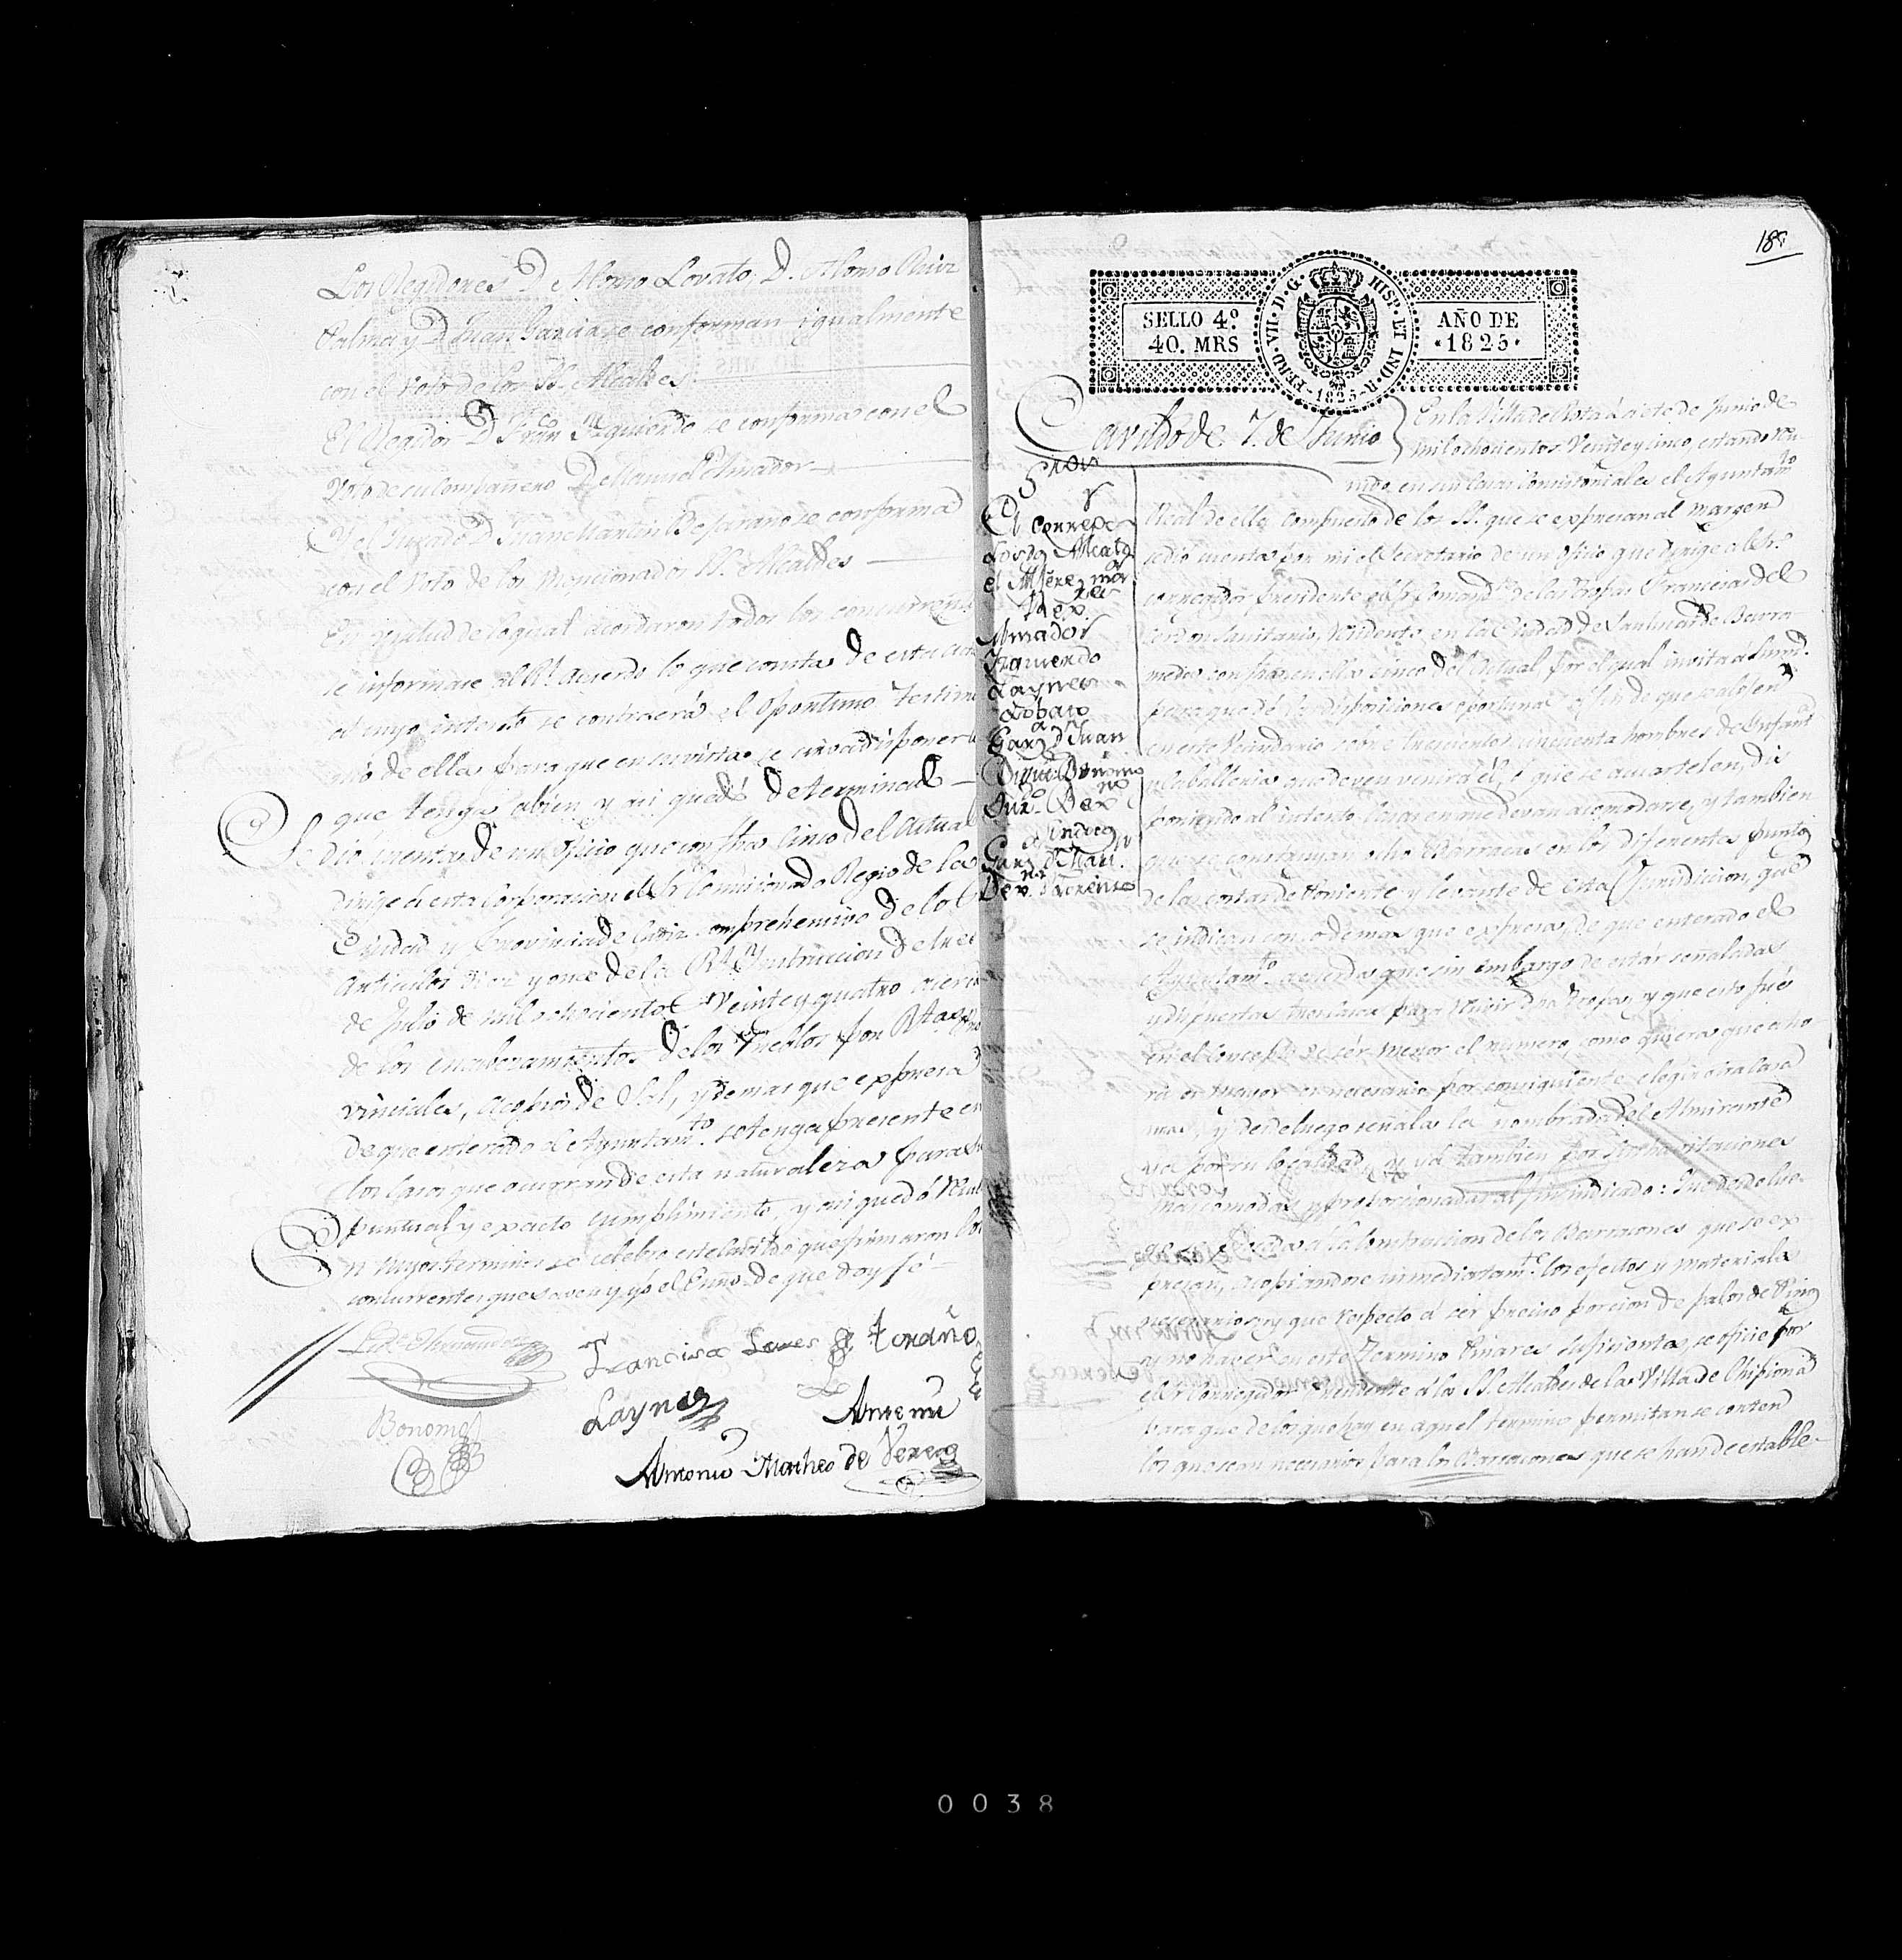 Los Regidores D.n Alonso Lovato, D. Alonso Ruiz
Palma y D. Juan Garcia se conforman igualmente
con el voto de los SS. Alcaldes
El Regidor D. Fran.co Yzquierdo se conforma con el
Voto de su Compañero D. Manuel Amador
Y el Jurado D. Juan Martin Bejarano se conforma
con el Voto de los mencionados SS. Alcaldes
En virtud de lo qual acordaron todos los concurrentes
se informase al R.l Acuerdo lo que consta de esta
a cuyo intento se contraerá el oportuno Testimo
nio de ella para que en su vista se sirva disponer lo
que tenga abien y asi quedó determinado
Se dio cuenta de un oficio que con fha. Cinco del Actual
dirije á esta Corporacion el Sr. Comisionado Regio de la
Ciudad y Provincia de Cadiz comprehensivo de los
Articulos diez y once de la R.l Ynstruccion de
de Julio de mil ochocientos Veinte y quatro acerca
de los encabezamientos de los Pueblos por R.tas Pro
vinciales, acopios de Sal, y demas que expresa
de que enterado el Ayuntam.to se tenga presente en
los casos que ocurran de esta naturaleza para su
puntual y exacto cumplimiento, y asi quedó
En cuyos terminos se celebró este Cabildo que firmaron los
concurrentes que saven y yo el Essno. de que doy fé
Francisco Torano
Laynez
Ante mi
Bonomo
Antonio Matheo de Verea
188
SELLO 4º
40. MRS
FERD · VII · D · G · HISP · ET IND · R ·
1825
AÑO DE
· 1825 ·
Cavildo de 7. de Junio
En la Villa de Rota á siete de Junio de
mil ochocientos Veinte y cinco, estando reu-
nido en sus Casas Consistoriales el Ayuntam.to
Sres.
El Correg.r
Los dos Alcald.s
el Alfere. mor
Amador
Yzquierdo
Laynez
Lobato
Garz.a D. Juan
Diput. Bonomo
Sindico
Garz.a D. Man.
Real de ella, compuesto de los SS. que se expresan al margen
se dio cuenta por mi el Secretario de un oficio que dirige al Sr.
corregidor Presidente el Sr. Comand.te de las Tropas Francesas del
Cordon Sanitario, residente en la Ciudad de Sanlucar de Barra
meda con fha. en ella cinco del actual por el qual invita á su md.
para que dé las disposiciones oportunas á fin de que se alojen
en este Vecindario sobre trescientos cincuenta hombres de Infant.a
y Caballeria que deven venir á él, ó que se aquartelen, dis
poniendo al intento Casas en que devan acomodarse, y tambien
que se construyan ocho Barracas en los diferentes puntos
de las costas de Poniente y levante de esta Jurisdiccion, que
se indican con lo demas que expresa, de que enterado el
Ayuntam.to acuerda que sin embargo de estár señaladas
y dispuestas tres casas para recivir dha. Tropa, y que esto fué
en el concepto de sér menor el numero, como quiera que aho
ra es mayor es necesario por consiguiente elegir otra casa
mas, y desde luego señala la nombrada del Almirante
ya por su localidad, y ya tambien por sus havitaciones
mas comodas y proporcionadas al fin indicado: Que desde lue-
go se proceda á la construccion de los Barracones que se ex-
presan, acopiandose inmediatam.te los efectos y materiales
necesarios, y que respecto á ser preciso porcion de palos de Pino
y no haver en este Termino Pinares suficientes, se oficie por
el Sr. Corregidor Presidente á los SS. Alcaldes de la Villa de Chipiona
para que de los que hay en aquel termino permitan se corten
los que sean necesarios para los Barracones que se han de estable-
0038